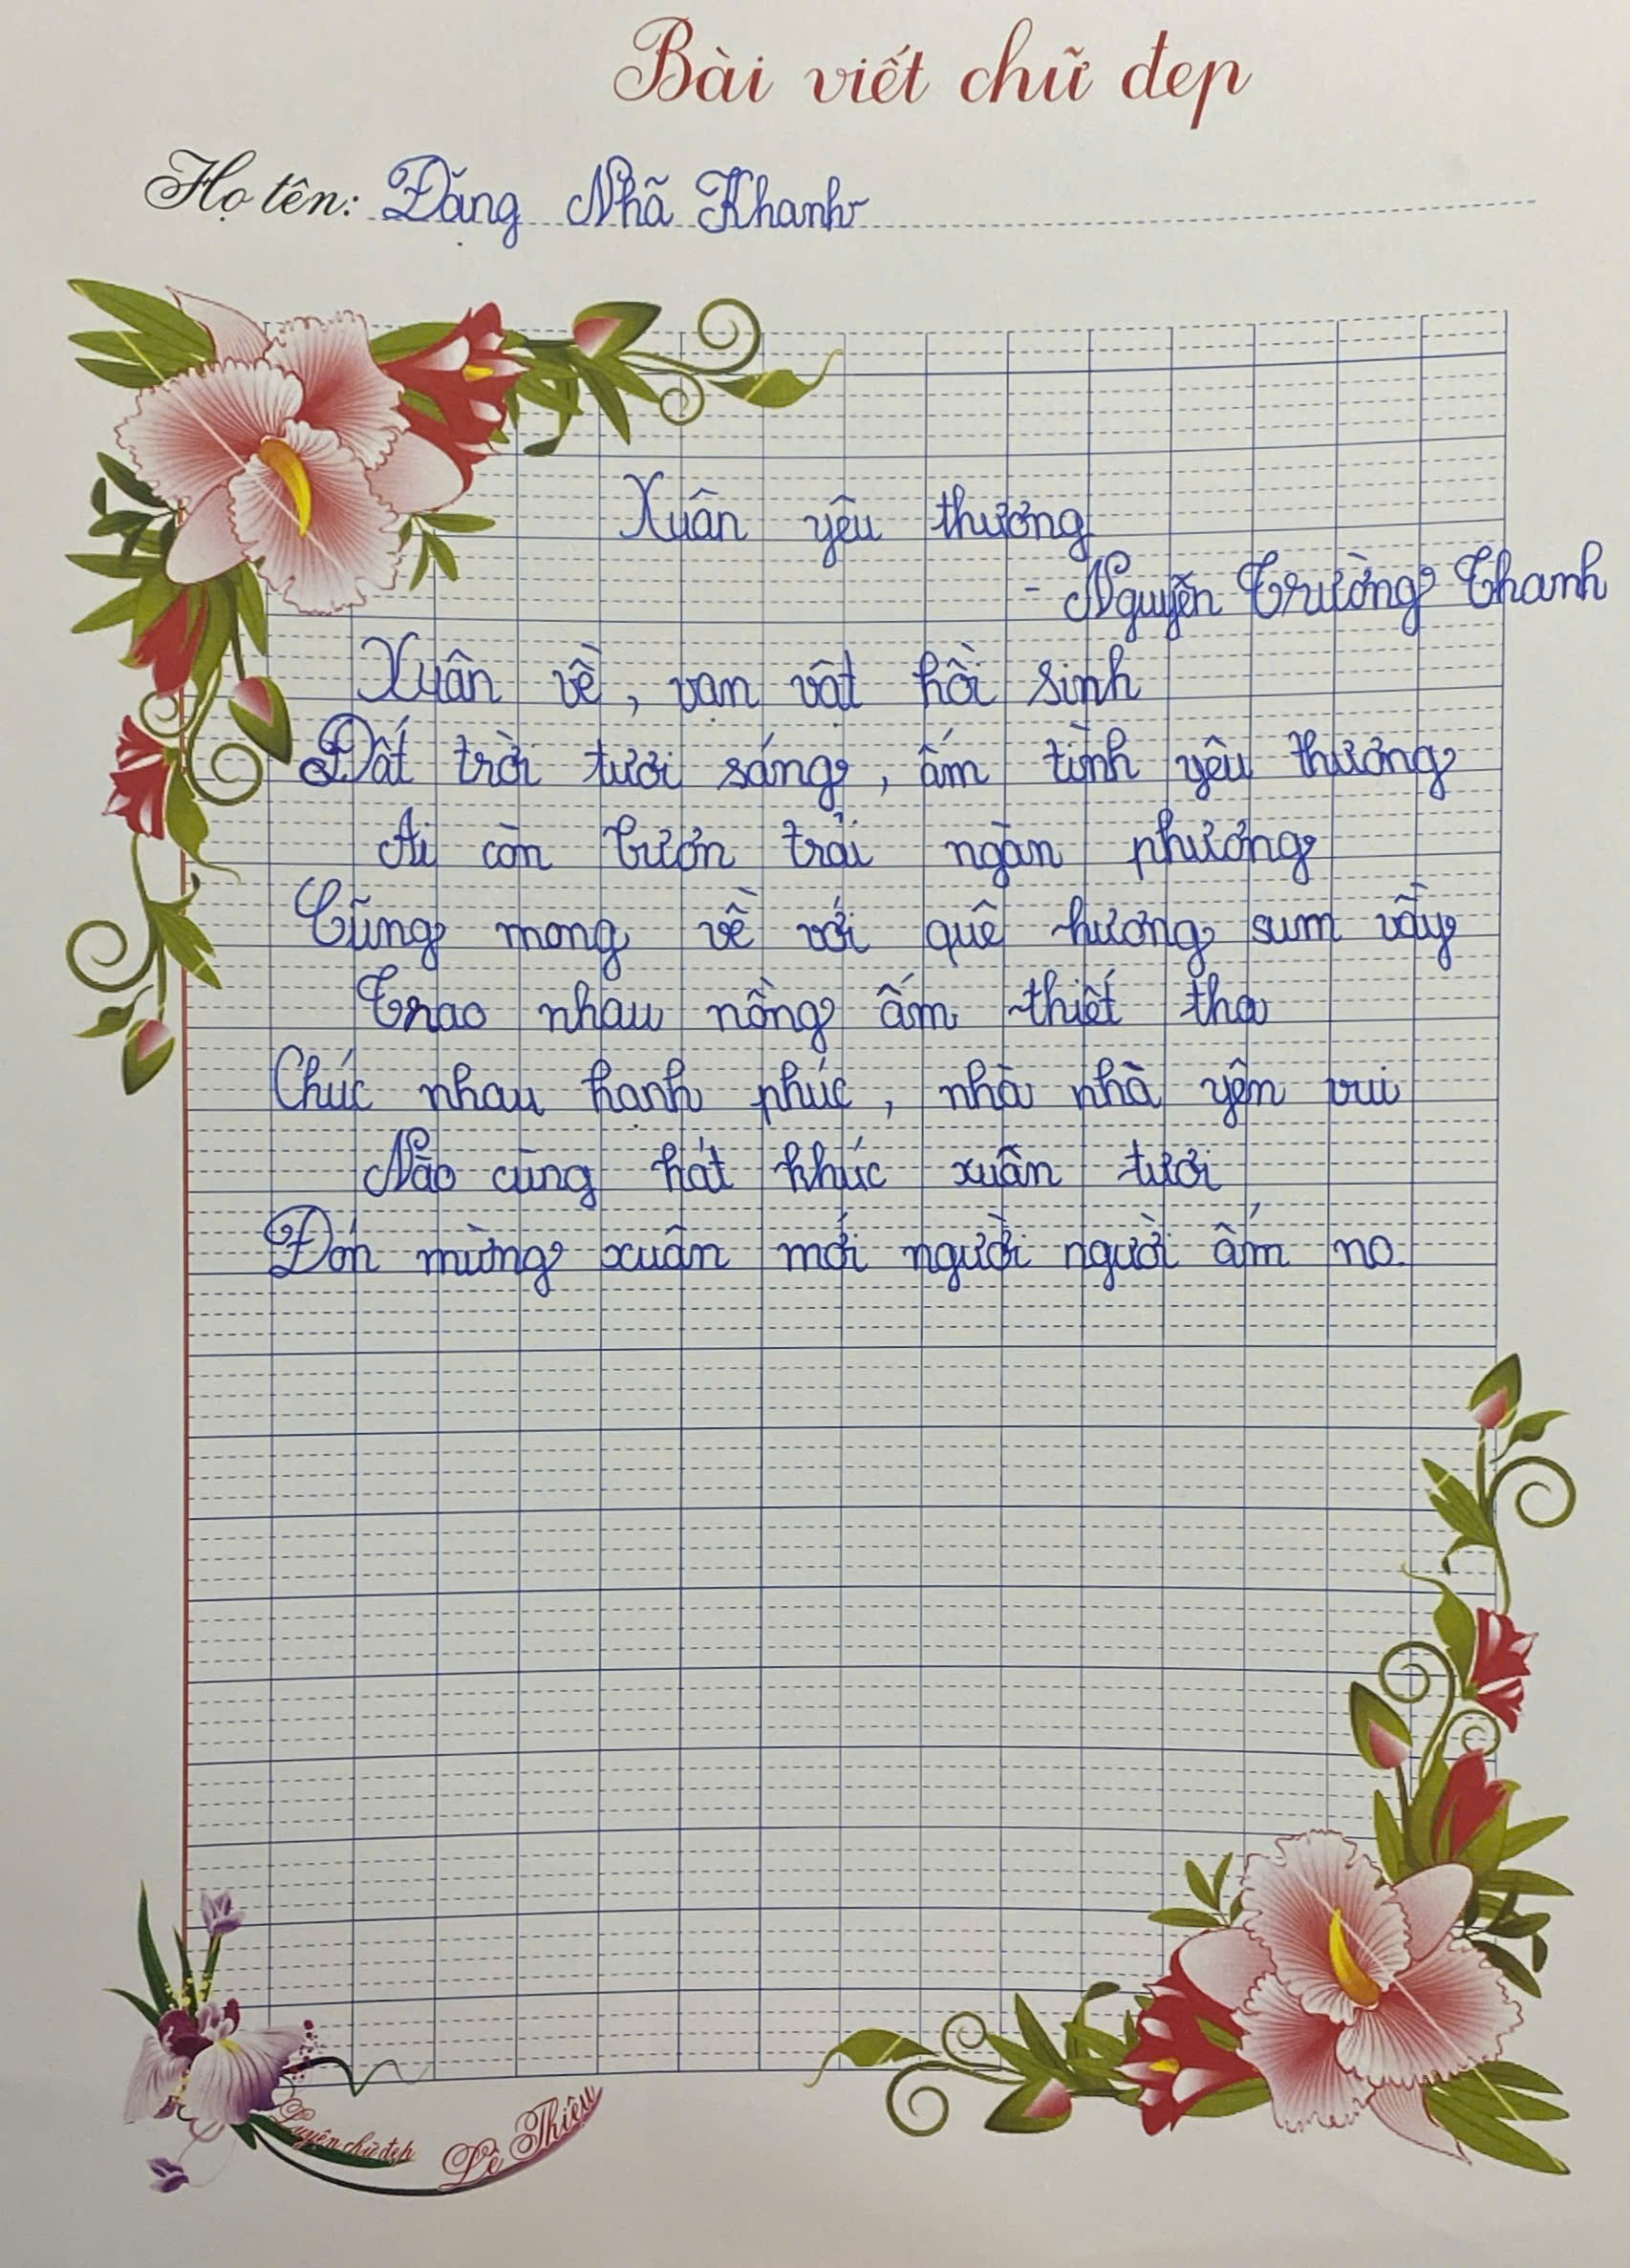 Bài viết chữ đẹp
Họ tên: Đặng Nhã Khanh
Xuân yêu thương
- Nguyễn Trường Thanh
Xuân về, vạn vật hồi sinh
Đất trời tươi sáng, ấm tình yêu thương
Ai còn bươn trải ngàn phương
Cũng mong về với quê hương sum vầy
Trao nhau nồng ấm thiết tha
Chúc nhau hạnh phúc, nhà nhà yên vui
Nào cùng hát khúc xuân tươi
Đón mừng xuân mới người người ấm no.
Luyện chữ đẹp Lê Thiệu